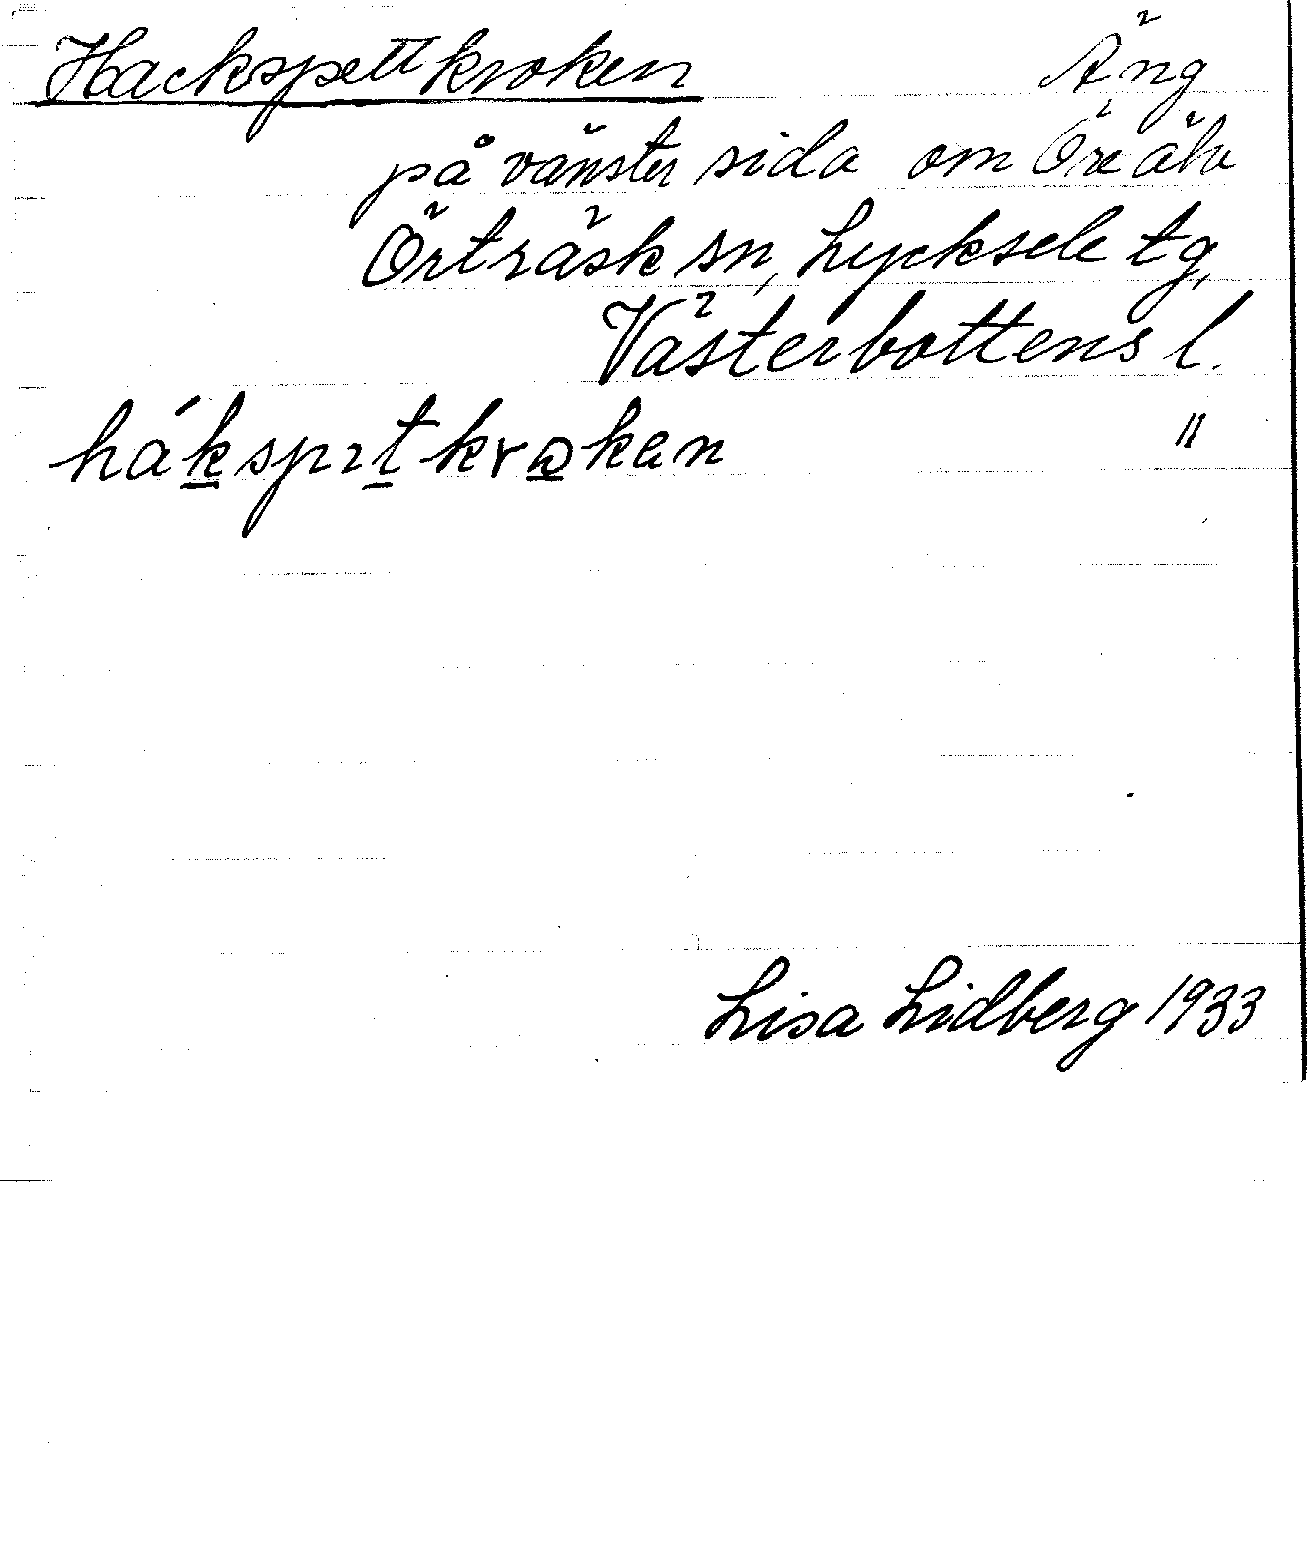 Hackspettkroken Äng
på vänster sida om Öreälv
Örträsk sn, Lycksele tg,
Västerbottens l.
håkspıtkrokan "
Lisa Lidberg 1933